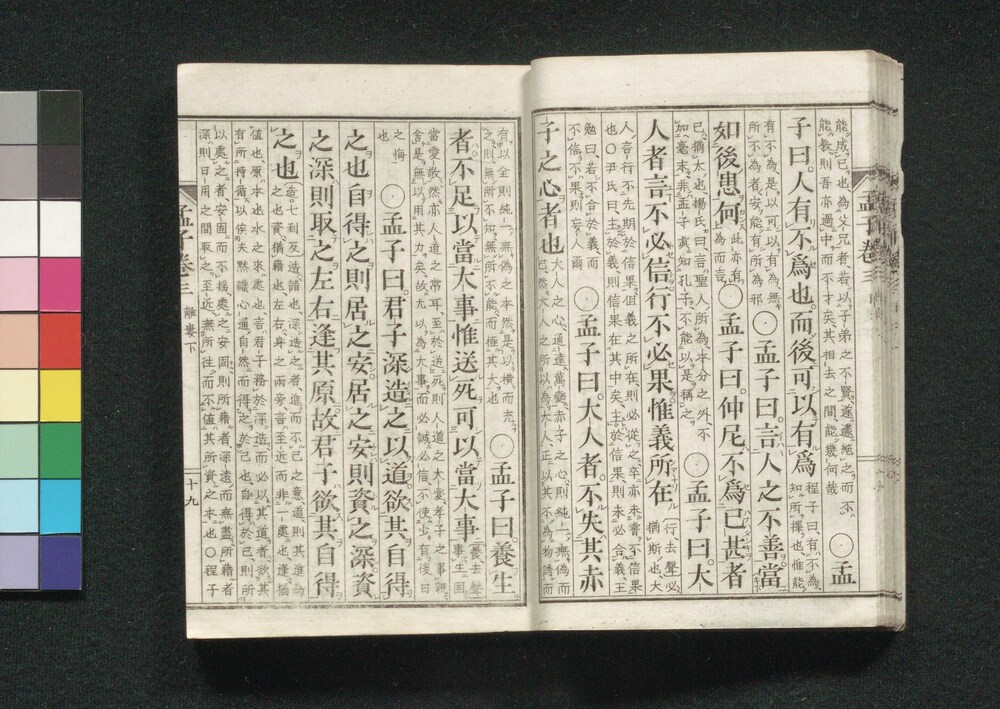 能。成已也。為父兄者。若以子弟之不賢。遂遽絶之而不
能教。則吾亦過中。而不才矣。其相去之間。能幾何哉 ○孟
子曰。人有不爲也。而後可以有爲 程子曰。有不為。知所擇也。惟能
有不為。是以可以有為。無
所不為者。安能有所為邪 ○孟子曰。言人之不善。當
如後患何 此亦有為而言 ○孟子曰。仲尼不爲已甚者
已。猶太也。楊氏曰。言聖人所為。本分之外。不加毫末。非孟子真知孔子。不能以是稱之 ○孟子曰。大
人者言不必信。行不必果。惟義所在 行。去聲。必。猶斯也。大
人言行。不先期於信果。但義之所在。則必從之。卒亦未嘗不信果
也。○尹氏曰。主於義。則信果在其中矣。主於信果。則未必合義。王
勉曰。若不合於義而不信不果。則妄人爾 ○孟子曰。大人者。不失其赤
子之心者也 大人之心。通達萬變。赤子之心。則純一無偽而
已。然大人之所以為大人。正以其不為物誘。而
有以全其純一無偽之本然。是以擴而充
之。則無所不知。無所不能。而極其大也 ○孟子曰。養生
者不足以當大事。惟送死可以當大事 養。去聲。事生固
當愛敬。然亦人道之常耳。至於送死。則人道之大變。孝子之事親。
舍是無以用其力矣。故尤以為大事。而必誠必信。不使少有後日
之悔也 ○孟子曰。君子深造之以道。欲其自得
之也。自得之。則居之安。居之安。則資之深。資
之深。則取之左右逢其原。故君子欲其自得
之也 造。七到反。造。詣也。深造之者。進而不已之意。道。則其進為
之方也。資。猶藉也。左右。身之兩旁。言至近而非一處也。逢。猶
值也。原。本也。水之來處也。言君子務於深造。而必以其道者。欲其
有所持循。以俟夫默識心通。自然而得之於己也。自得於己。則所
以處之者。安固而不搖。處之安固。則所藉者。深遠而無盡。所藉者
深。則日用之間。取之至近。無所往而不值其所資之本也。○程子
孟子卷三 離婁下 十九
孟子卷三